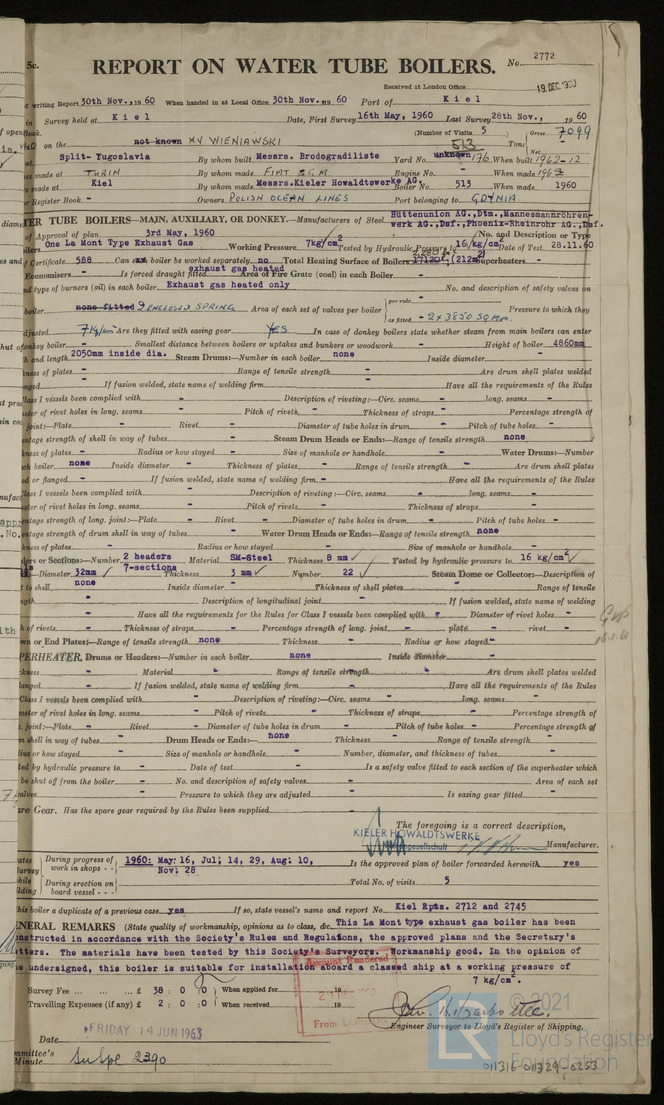 5c.
REPORT ON WATER TUBE BOILERS.
No. 2772
Received at London Office 19 DEC 1960
writing Report 30th Nov., 19 60 When handed in at Local Office 30th Nov., 19 60 Port of Kiel
Survey held at Kiel Date, First Survey 16th May, 1960 Last Survey 28th Nov., 19 60
Book. (Number of Visits 5) Gross 7099
on the not known MV WIENIAWSKI Tons Net
at Split- Yugoslavia By whom built Messrs. Brodogradiliste Yard No. unknown 176 When built 1962-12
made at TURIN By whom made FIAT S.G.M. Engine No. - When made 1962
made at Kiel By whom made Messrs. Kieler Howaldtswerke AG. Boiler No. 513 When made 1960
Register Book - Owners POLISH OCEAN LINES Port belonging to GDYNIA
TER TUBE BOILERS—MAIN, AUXILIARY, OR DONKEY.—Manufacturers of Steel Hüttenunion AG., Dtm., Mannesmannröhren-
werk AG., Dsf., Phoenix-Rheinrohr AG., Dsf.
of Approval of plan 3rd May, 1960 No. and Description or Type
One La Mont Type Exhaust Gas Working Pressure 7kg/cm² Tested by Hydraulic Pressure to 16/kg/cm² Date of Test 28.11.60
Certificate 588 Can boiler be worked separately no Total Heating Surface of Boilers (212m²) Superheaters -
Economisers - Is forced draught fitted exhaust gas heated Area of Fire Grate (coal) in each Boiler -
nd type of burners (oil) in each boiler Exhaust gas heated only No. and description of safety valves on
boiler none fitted 2 ENCLOSED SPRING Area of each set of valves per boiler per rule - as fitted - 2x3850 SQ.MM. Pressure to which they
djusted 7 Kg/cm² Are they fitted with easing gear YES In case of donkey boilers state whether steam from main boilers can enter
onkey boiler - Smallest distance between boilers or uptakes and bunkers or woodwork - Height of boiler 4860mm
h and length 2050mm inside dia. Steam Drums:—Number in each boiler none Inside diameter -
kness of plates - Range of tensile strength - Are drum shell plates welded
nged - If fusion welded, state name of welding firm - Have all the requirements of the Rules
lass I vessels been complied with - Description of riveting:—Circ. seams - long. seams -
eter of rivet holes in long. seams - Pitch of rivets - Thickness of straps - Percentage strength of
joint:—Plate - Rivet - Diameter of tube holes in drum - Pitch of tube holes -
entage strength of shell in way of tubes - Steam Drum Heads or Ends:—Range of tensile strength none
kness of plates - Radius or how stayed - Size of manhole or handhole - Water Drums:—Number
ch boiler none Inside diameter - Thickness of plates - Range of tensile strength - Are drum shell plates
ed or flanged - If fusion welded, state name of welding firm - Have all the requirements of the Rules
lass I vessels been complied with - Description of riveting:—Circ. seams - long. seams -
eter of rivet holes in long. seams - Pitch of rivets - Thickness of straps -
entage strength of long. joint:—Plate - Rivet - Diameter of tube holes in drum - Pitch of tube holes -
entage strength of drum shell in way of tubes - Water Drum Heads or Ends:—Range of tensile strength none
kness of plates - Radius or how stayed - Size of manhole or handhole -
ders or Sections:—Number 2 headers 7-sections Material SM-Steel Thickness 8 mm ✓ Tested by hydraulic pressure to 16 kg/cm² ✓
—Diameter 32mm ✓ Thickness 3 mm ✓ Number 22 ✓ Steam Dome or Collector:—Description of
t to shell none Inside diameter - Thickness of shell plates - Range of tensile
ngth - Description of longitudinal joint - If fusion welded, state name of welding
- Have all the requirements for the Rules for Class I vessels been complied with - Diameter of rivet holes -
h of rivets - Thickness of straps - Percentage strength of long. joint - plate - rivet -
wn or End Plates:—Range of tensile strength none Thickness - Radius or how stayed -
PERHEATER, Drums or Headers:—Number in each boiler none Inside diameter -
ckness - Material - Range of tensile strength - Are drum shell plates welded
langed - If fusion welded, state name of welding firm - Have all the requirements of the Rules
Class I vessels been complied with - Description of riveting:—Circ. seams - long. seams -
meter of rivet holes in long. seams - Pitch of rivets - Thickness of straps - Percentage strength of
joint:—Plate - Rivet - Diameter of tube holes in drum - Pitch of tube holes - Percentage strength of
shell in way of tubes - Drum Heads or Ends:— none Thickness - Range of tensile strength -
ius or how stayed - Size of manhole or handhole - Number, diameter, and thickness of tubes -
ted by hydraulic pressure to - Date of test - Is a safety valve fitted to each section of the superheater which
be shut off from the boiler - No. and description of safety valves - Area of each set
valves - Pressure to which they are adjusted - Is easing gear fitted -
re Gear. Has the spare gear required by the Rules been supplied -
The foregoing is a correct description,
KIELER HOWALDTSWERKE
Manufacturer.
During progress of work in shops - - 1960: May: 16, Jul; 14, 29, Aug: 10, Nov: 28 Is the approved plan of boiler forwarded herewith yes
During erection on board vessel - - - Total No. of visits 5
his boiler a duplicate of a previous case yes If so, state vessel's name and report No. Kiel Rpts. 2712 and 2745
NERAL REMARKS (State quality of workmanship, opinions as to class, &c. This La Mont type exhaust gas boiler has been
nstructed in accordance with the Society's Rules and Regulations, the approved plans and the Secretary's
tters. The materials have been tested by this Society's Surveyors. Workmanship good. In the opinion of
e undersigned, this boiler is suitable for installation aboard a classed ship at a working pressure of
7 kg/cm².
Survey Fee ... ... ... £ 38 : 0 : 0 When applied for 19
Travelling Expenses (if any) £ 2 : 0 : 0 When received 19
Account Rendered
Engineer Surveyor to Lloyd's Register of Shipping.
Date FRIDAY 14 JUN 1963
mmittee's
Minute
© 2021
Lloyd's Register
Foundation
011316-011329-0253